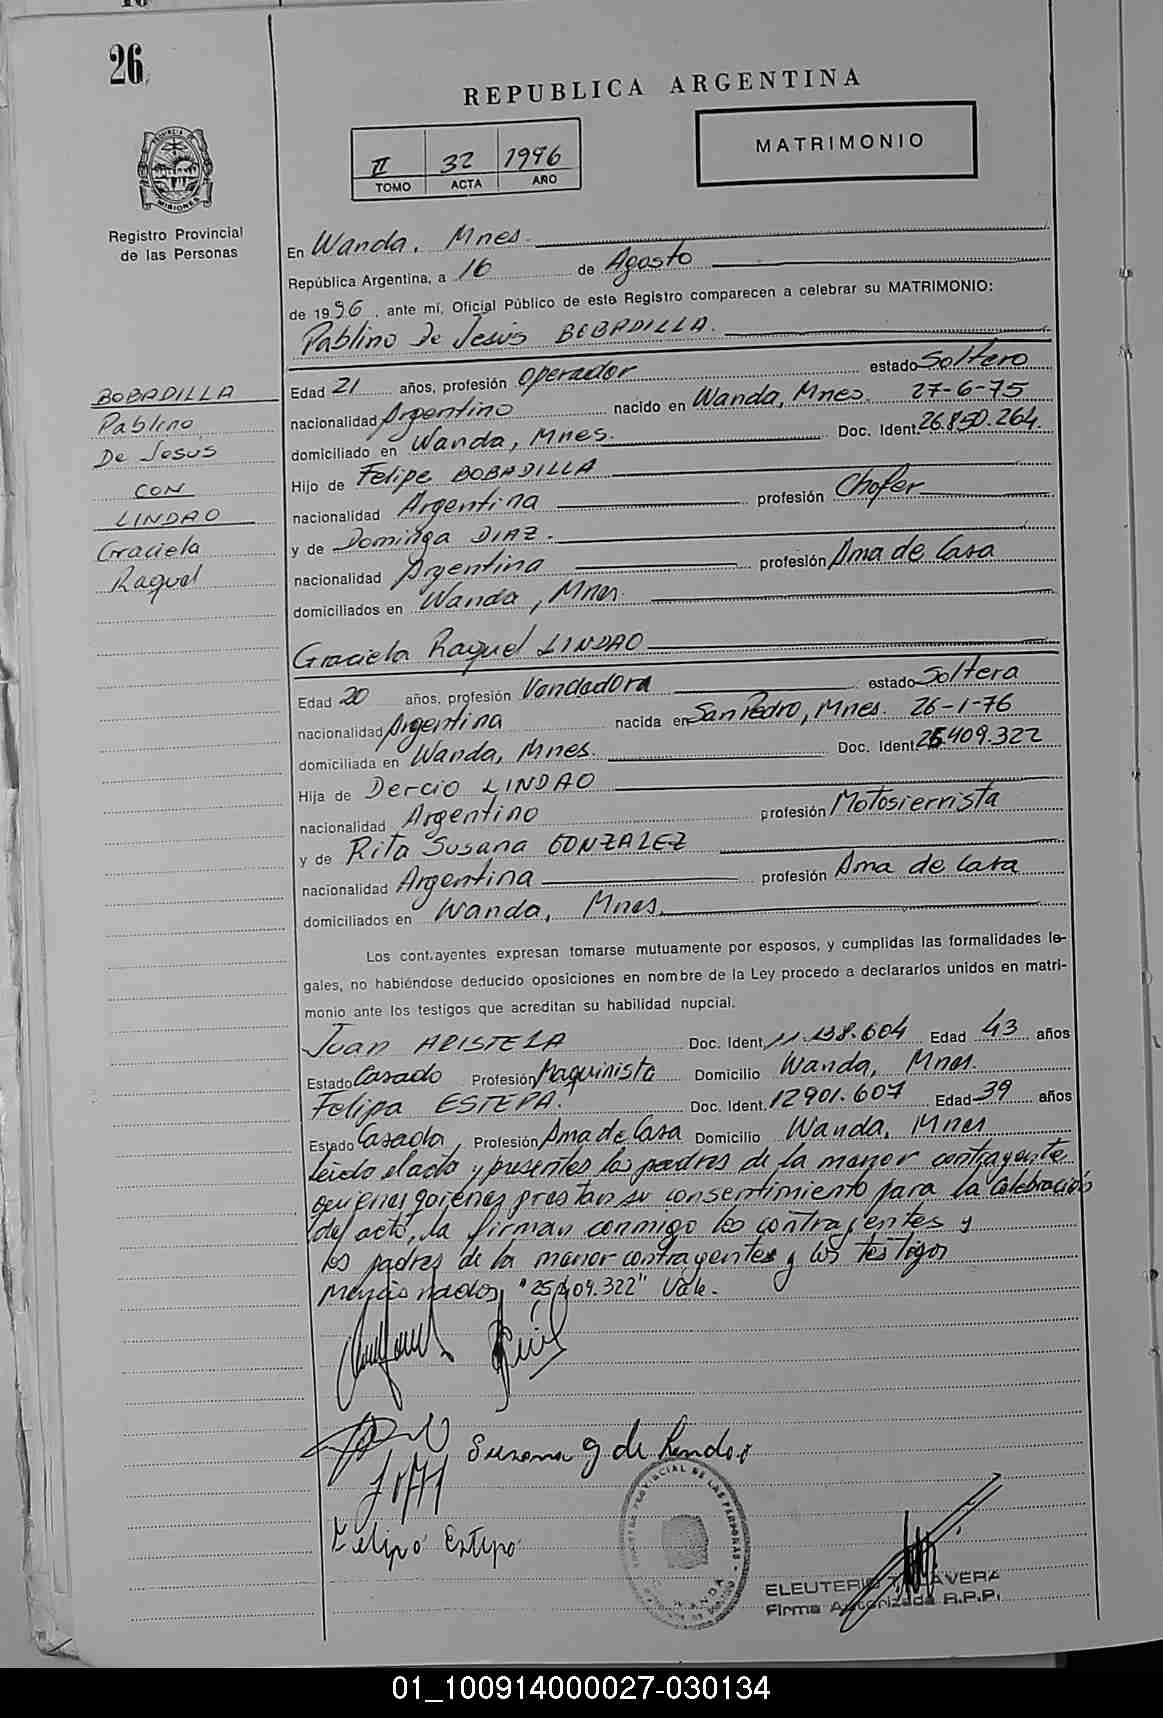 26
REPUBLICA ARGENTINA
MATRIMONIO
II 32 1996
TOMO ACTA AÑO
PROVINCIA DE MISIONES
Registro Provincial
de las Personas
En Wanda, Mnes.
República Argentina, a 16 de Agosto
de 1996, ante mí, Oficial Público de este Registro comparecen a celebrar su MATRIMONIO:
Pablino De Jesús BOBADILLA.
BOBADILLA
Pablino
De Jesús
CON
LINDAO
Graciela
Raquel
Edad 21 años, profesión Operador estado Soltero
nacionalidad Argentino nacido en Wanda, Mnes. 27-6-75
domiciliado en Wanda, Mnes. Doc. Ident. 26.850.264.
Hijo de Felipe BOBADILLA
nacionalidad Argentina profesión Chofer
y de Dominga DIAZ.
nacionalidad Argentina profesión Ama de Casa
domiciliados en Wanda, Mnes.
Graciela Raquel LINDAO
Edad 20 años, profesión Vendedora estado Soltera
nacionalidad Argentina nacida en San Pedro, Mnes. 26-1-76
domiciliada en Wanda, Mnes. Doc. Ident. 25.409.322
Hija de Dercio LINDAO
nacionalidad Argentino profesión Motosierrista
y de Rita Susana GONZALEZ
nacionalidad Argentina profesión Ama de Casa
domiciliados en Wanda, Mnes.
Los contrayentes expresan tomarse mutuamente por esposos, y cumplidas las formalidades le-
gales, no habiéndose deducido oposiciones en nombre de la Ley procedo a declararlos unidos en matri-
monio ante los testigos que acreditan su habilidad nupcial.
Juan Doc. Ident. 11.138.604 Edad 43 años
Estado Casado Profesión Maquinista Domicilio Wanda, Mnes.
Felipa ESTEPA. Doc. Ident. 12901.607 Edad 39 años
Estado Casada, Profesión Ama de Casa Domicilio Wanda, Mnes
Leido el acta y presentes los padres de la menor contrayente
quienes quienes prestan su consentimiento para la celebración
del acto, la firman conmigo los contrayentes y
los padres de la menor contrayentes y los testigos
mencionados, "25.409.322" Vale.
Susana G de
Felipa Estepa
WANDA
ELEUTERIO TALAVERA
Firma Autorizada R.P.P.
01_100914000027-030134